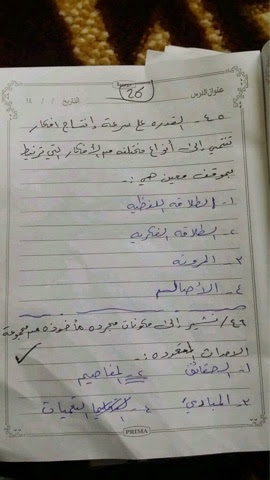 عنوان الدرس 26 التاريخ / / 14
٤٥- القدره على سرعة إنتاج افكار
تنتمي إلى أنواع مختلفه من الافكار التي ترتبط
بموقف معين هي :-
١- الطلاقه اللفظيه
٢- الطلاقه الفكريه
٣- المرونه
٤- الأصاله
٤٦/ تشير الى مكونات مجرده مأخوذه من مجموعة
الاحداث المحدوده :-
١- الحقائق ٢- المفاهيم
٣- المبادئ ٤- التعميمات
PRIMA